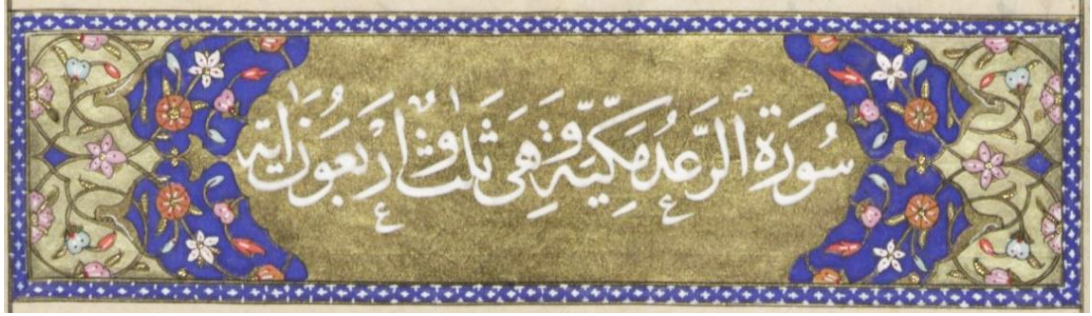 سُورَةُ الرَّعْدِ مَكِّيَّةٌ وَهِيَ ثَلٰثٌ وَاَرْبَعُونَ اٰيَةً